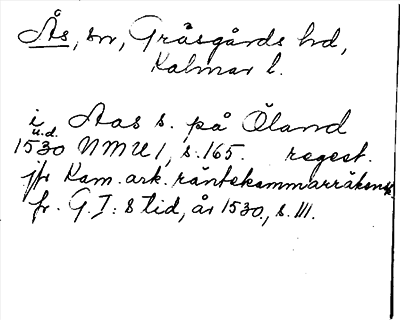 Ås, sn, Gräsgårds hd,
Kalmar l.
i Aas s. på Öland
u.d.
1530 NMU 1, s. 165. regest.
jfr Kam. ark. räntekammarräkensk.
fr. G. I:s tid, år 1530, s. 111.